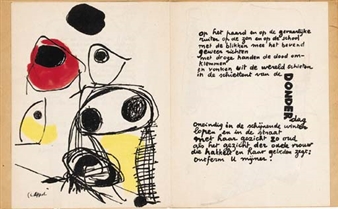 op het paard en op de gevaarlijke
punten op de zon en op de school
met de blikken mee het bevend
geweer richten
met droge handen de dood om-
klemmen
zo vonken uit de wereld schieten
in de schietlent van de
DONDER
dag
Oneindig in de schijnende winter
lopen en in de straat
met haar gezicht zo oud
als het gezicht der oude vrouw
die hakkelt en haar geleden zegt:
Ontferm U mijner!